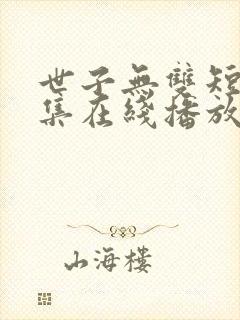 世子無雙短
集在綫播放
山海樓